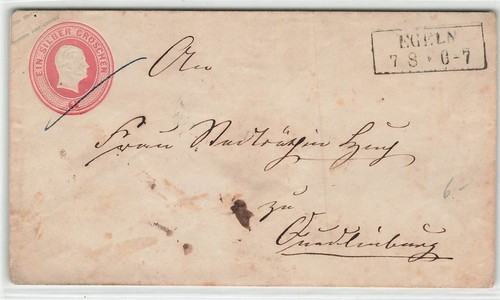 EIN SILBER GROSCHEN
EGELN
7 8 * 6-7
An
Frau Stadträthin
zu
Quedlinburg
6.-